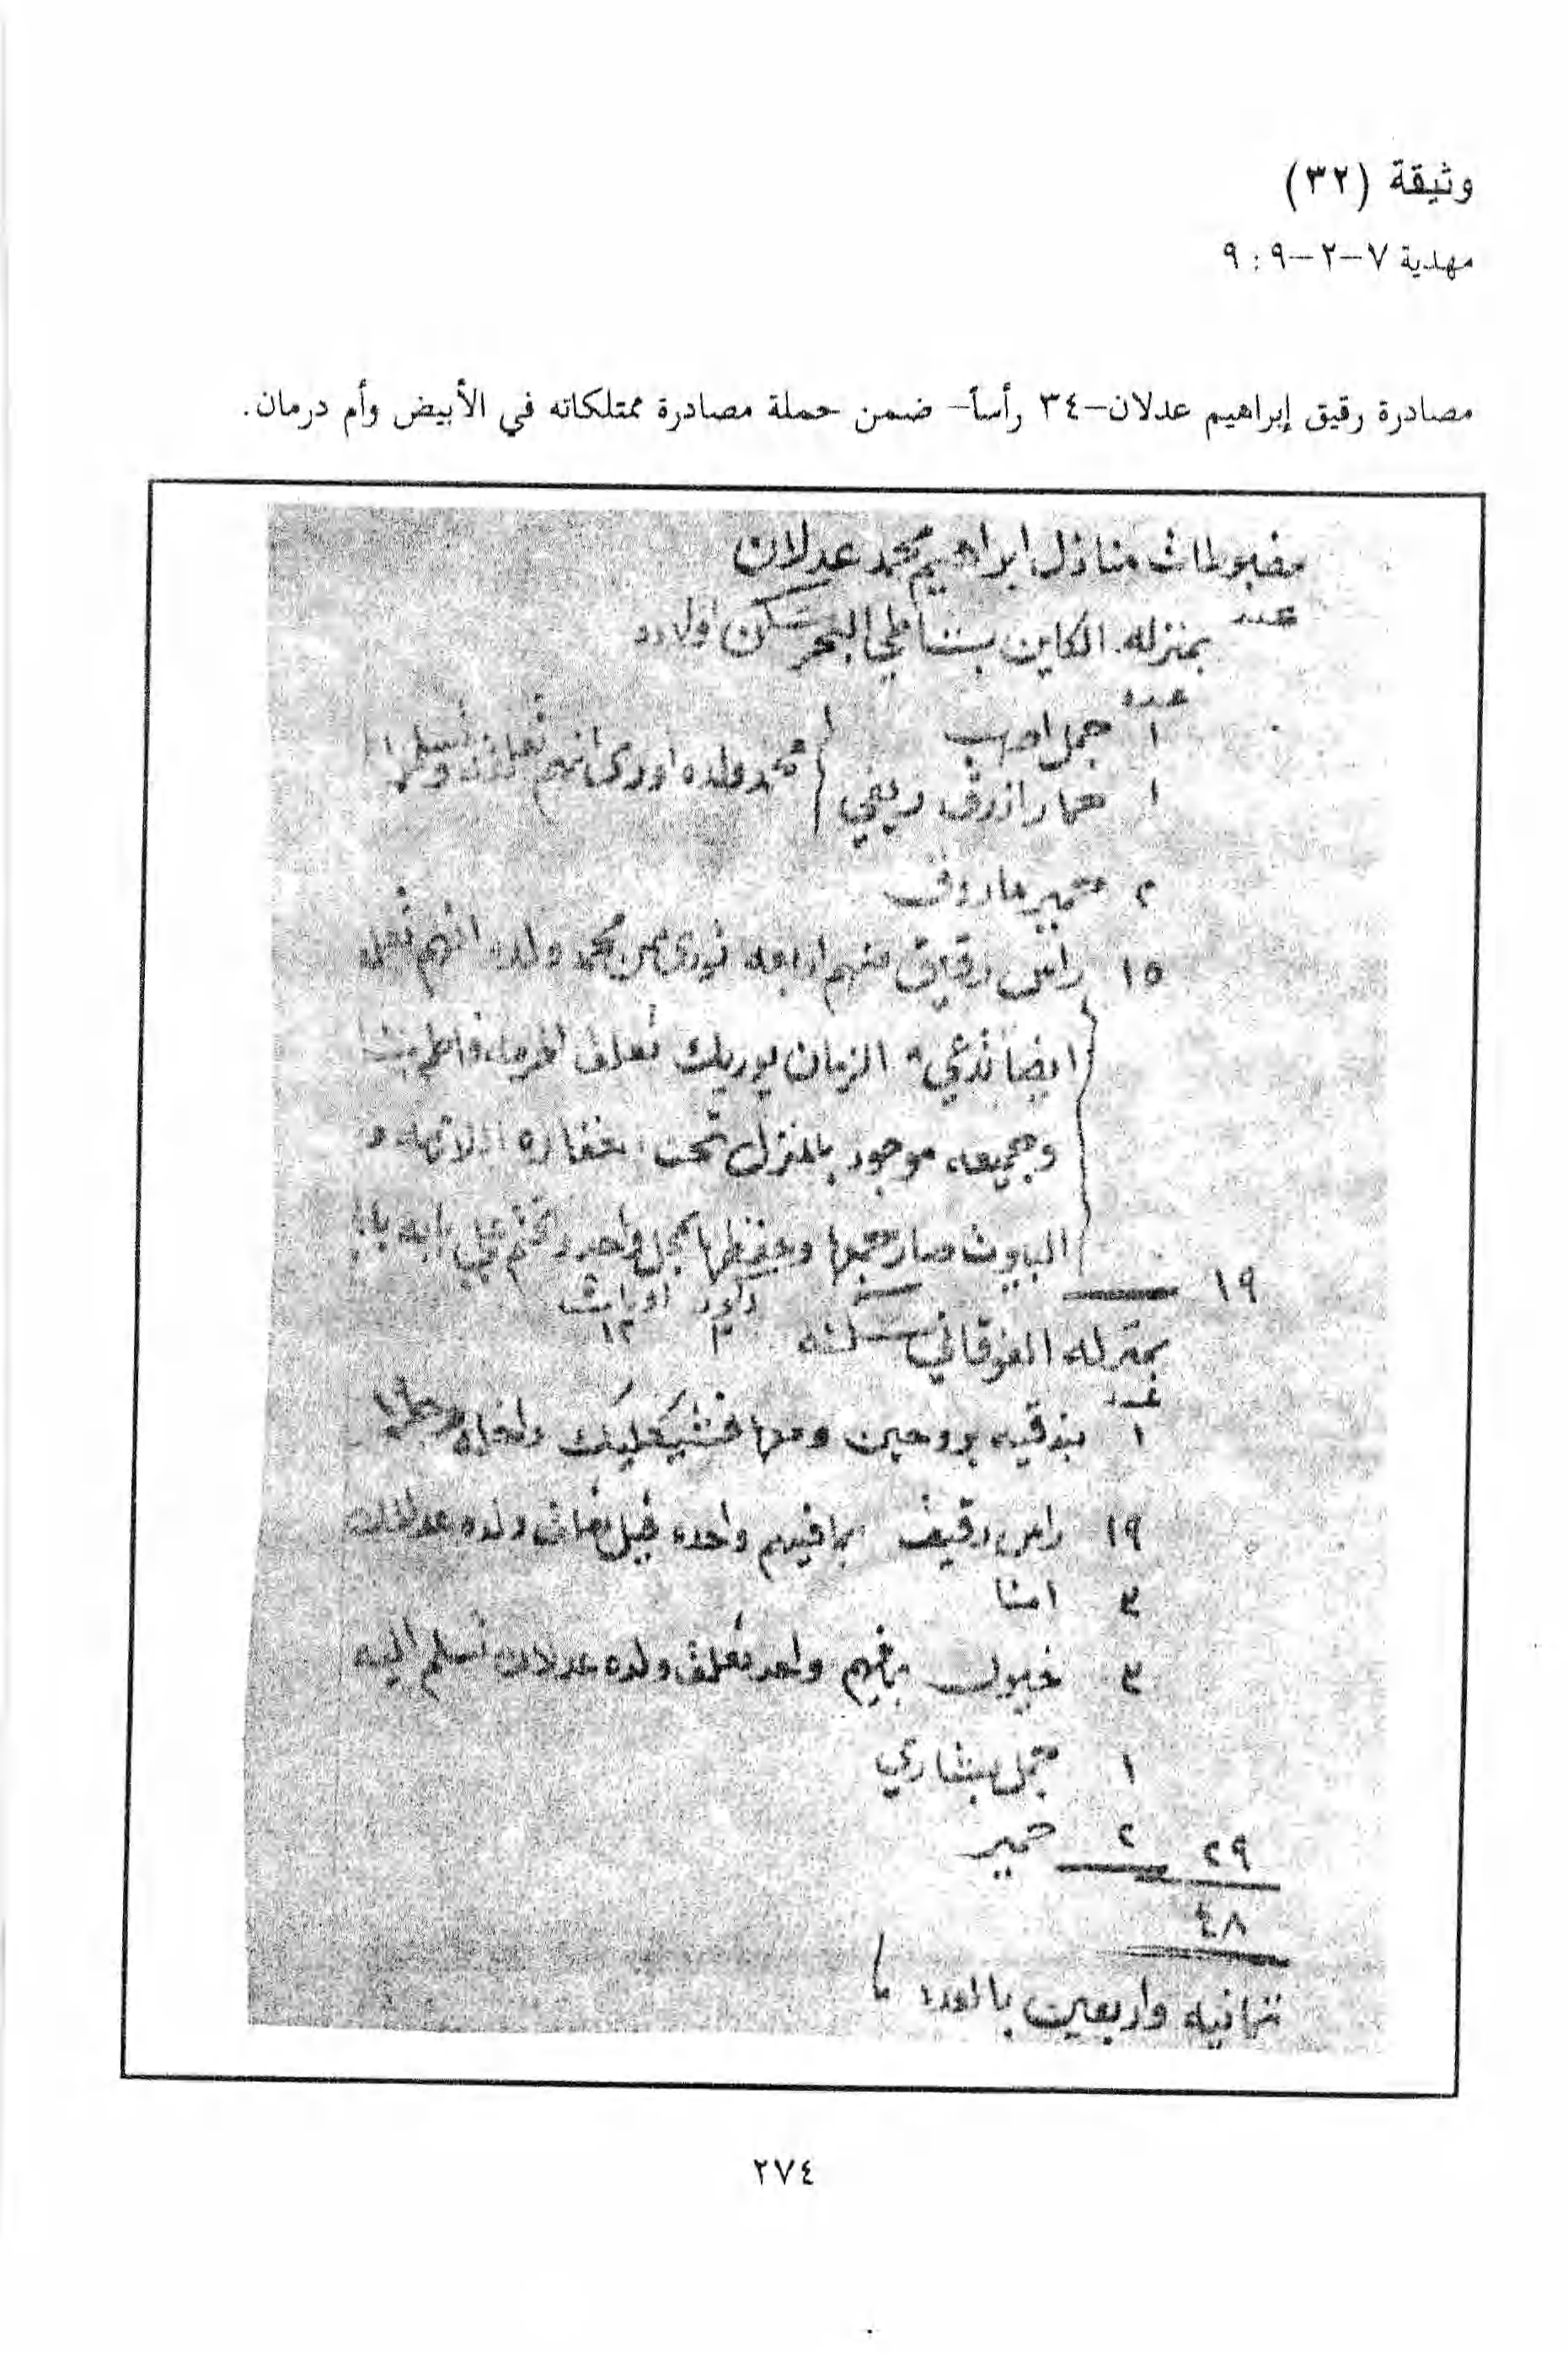 وثيقة (٣٢)
مهدية ٧-٢-٩ : ٩
مصادرة رقيق إبراهيم عدلان-٣٤ رأساً- ضمن حملة مصادرة ممتلكاته في الأبيض وأم درمان.
مضبوطات منازل ابراهيم محمد عدلان
عدد بمنزله الكاين بشاطي البحر سكن اولاده
عدد
١ جمل اصهب
١ حمار ازرق ريفي
محمد ولده اورى انهم تعلقه
٢ حمير
١٥ راس رقيق منهم اربعه محمد ولده انهم تعلقه
ايضا الزمان يوريك تعلق
وجميعه موجود بالمنزل تحت خفاره و
صار جمعها وحفظها بمحل واحد وختم على بابه
١٩
بمنزله الفوقاني سكنه
١٢ ٣
عدد
١ بندقيه بروحين ومعها
١٩ راس رقيق بما فيهم واحده ولده عدلان
٣
٣ خيول بما فيهم واحد تعلق ولده عدلان تسلم اليه
١ جمل بشاري
٢٩ ٢ حمير
٤٨
ثمانيه واربعين بالعدد
٢٧٤